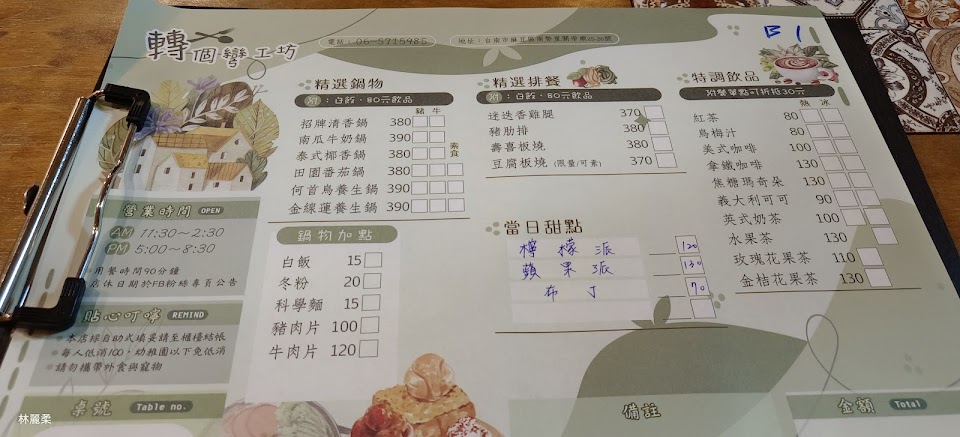 轉個彎工坊
電話：06-5715985
B1
精選鍋物
附：白飯、50元飲品
豬 牛
素食
招牌清香鍋 380
南瓜牛奶鍋 390
泰式椰香鍋 380
田園番茄鍋 380
何首烏養生鍋 390
金線蓮養生鍋 390
精選排餐
附：白飯、50元飲品
迷迭香雞腿 370
豬肋排 380
壽喜板燒 380
豆腐板燒 (限量/可素) 370
特調飲品
附餐單點可折抵30元
熱 冰
紅茶 80
烏梅汁 80
美式咖啡 100
拿鐵咖啡 130
焦糖瑪奇朵 130
義大利可可 90
英式奶茶 100
水果茶 130
玫瑰花果茶 110
金桔花果茶 130
營業時間 OPEN
AM 11:30~2:30
PM 5:00~8:30
用餐時間90分鐘
店休日期於FB粉絲專頁公告
貼心叮嚀 REMIND
本店採自助式填妥請至櫃檯結帳
每人低消100，幼稚園以下免低消
請勿攜帶外食與寵物
鍋物加點
白飯 15
冬粉 20
科學麵 15
豬肉片 100
牛肉片 120
當日甜點
檸檬派 120
蘋果派 130
布丁 70
桌號 Table no.
備註
金額 Total
林麗柔